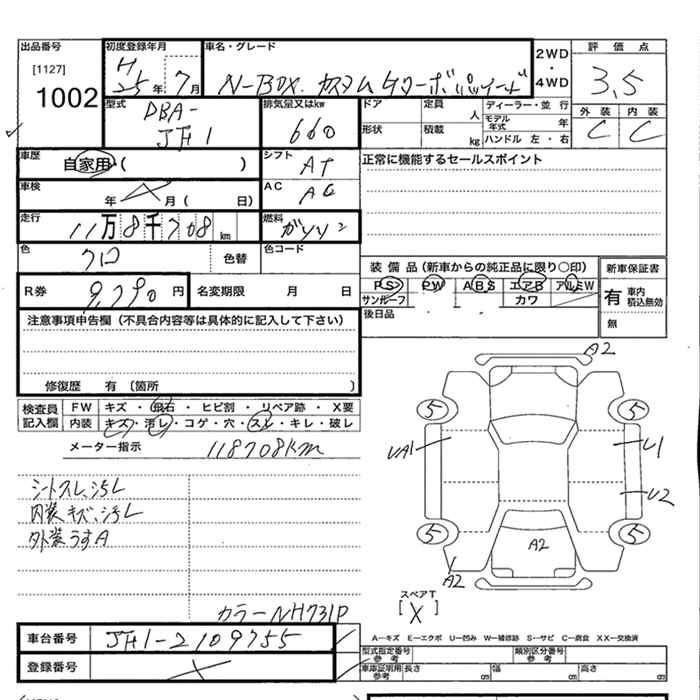 出品番号
[1127]
1002
初度登録年月
H 25年 7月
車名・グレード
N-BOX カスタム Gターボパッケージ
2WD ・ 4WD
評価点
3.5
外装 内装
C C
型式
DBA-JF1
排気量又はkw
660
ドア 定員 人
形状 積載 kg
ディーラー・並行
モデル年式 年
ハンドル 左・右
車歴
自家用・( )
シフト
AT
正常に機能するセールスポイント
車検
年 月( 日)
AC
AC
走行
11万8千708 km
燃料
ガソリン
色
クロ
色替
色コード
R券
9,790 円
名変期限 月 日
装備品(新車からの純正品に限り〇印)
PS PW ABS エアB アルミW
サンルーフ カワ
新車保証書
有 車内積込無効
無
後日品
注意事項申告欄(不具合内容等は具体的に記入して下さい)
修復歴 有〔箇所 〕
検査員記入欄
FW キズ・飛石・ヒビ割・リペア跡・X要
内装 キズ・汚レ・コゲ・穴・スレ・キレ・破レ
メーター指示
118708km
シートスレ、汚レ
内装キズ、汚レ
外装うすA
カラーNH731P
A2
5 5
UA1 U1
U2
5 5
A2
A2
スペアT
[X]
車台番号
JF1-2109755
登録番号
A－キズ E－エクボ U－凹み W－補修跡 S－サビ C－腐食 XX－交換済
型式指定番号 参考
類別区分番号 参考
車庫証明用参考 長さ cm 幅 cm 高さ cm